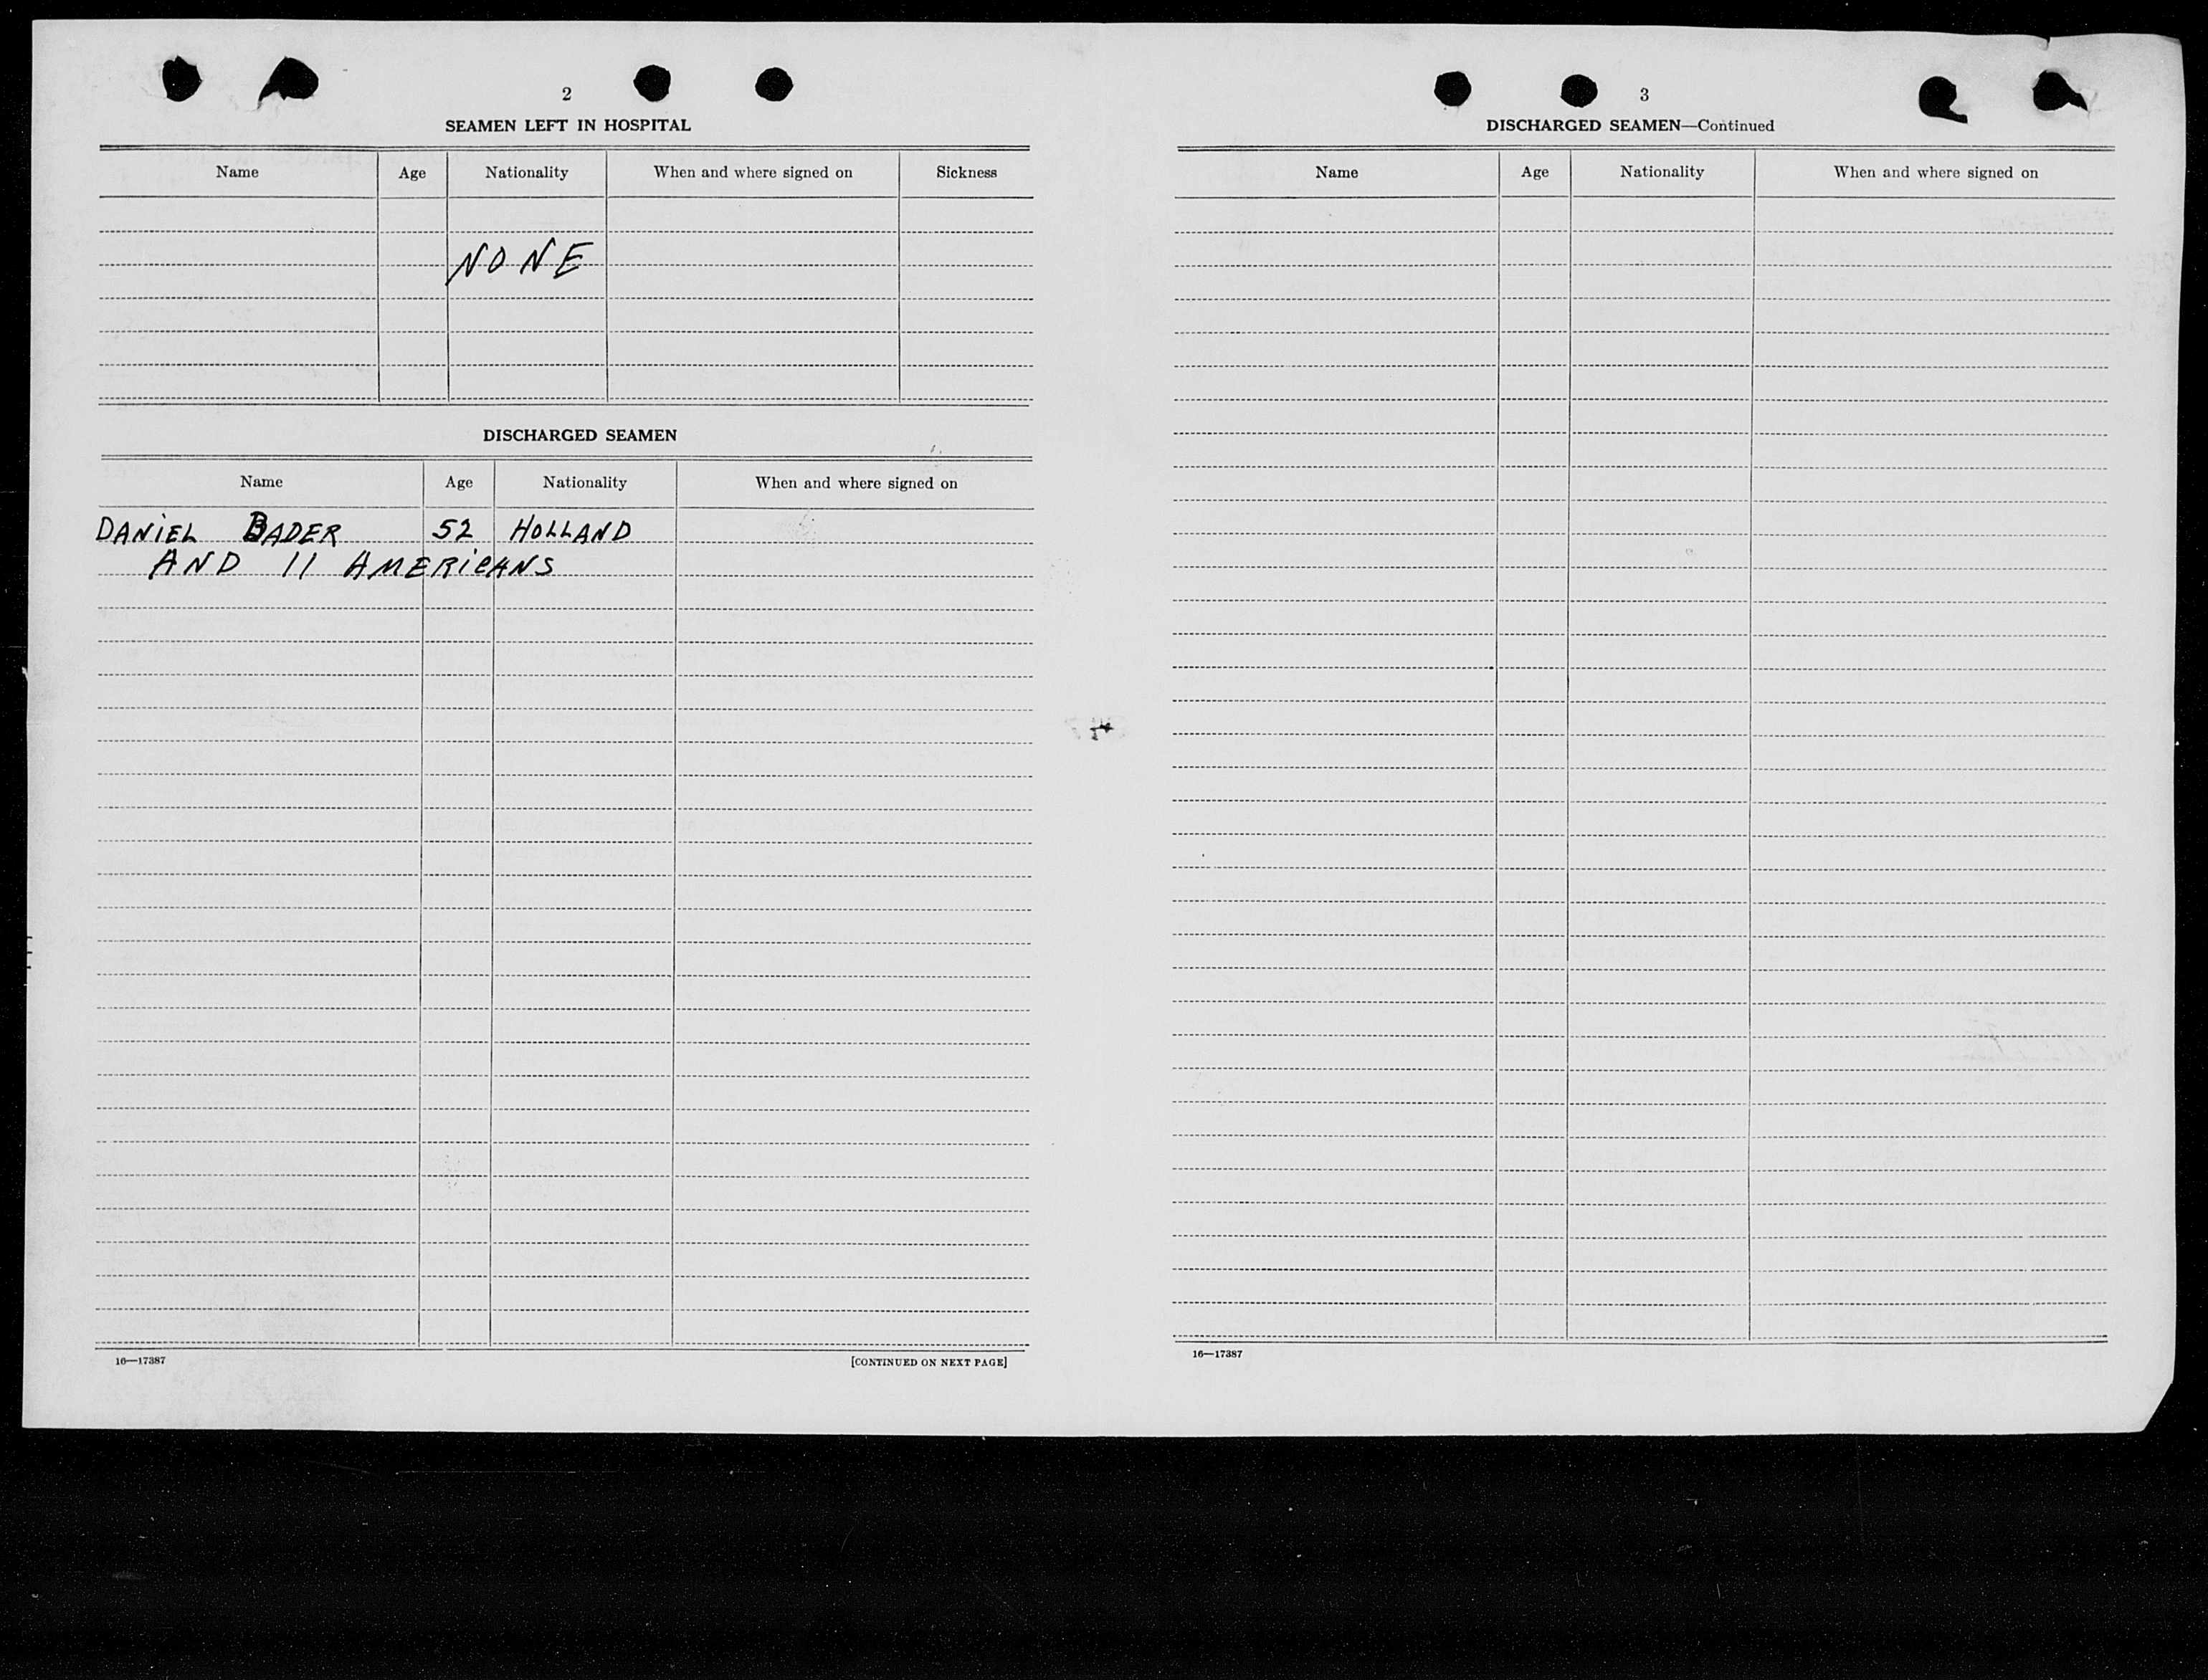 2
SEAMEN LEFT IN HOSPITAL
Name Age Nationality When and where signed on Sickness
NONE
DISCHARGED SEAMEN
Name Age Nationality When and where signed on
DANIEL BADER 52 HOLLAND
AND 11 AMERICANS
16—17387 [CONTINUED ON NEXT PAGE]
3
DISCHARGED SEAMEN—Continued
Name Age Nationality When and where signed on
16—17387